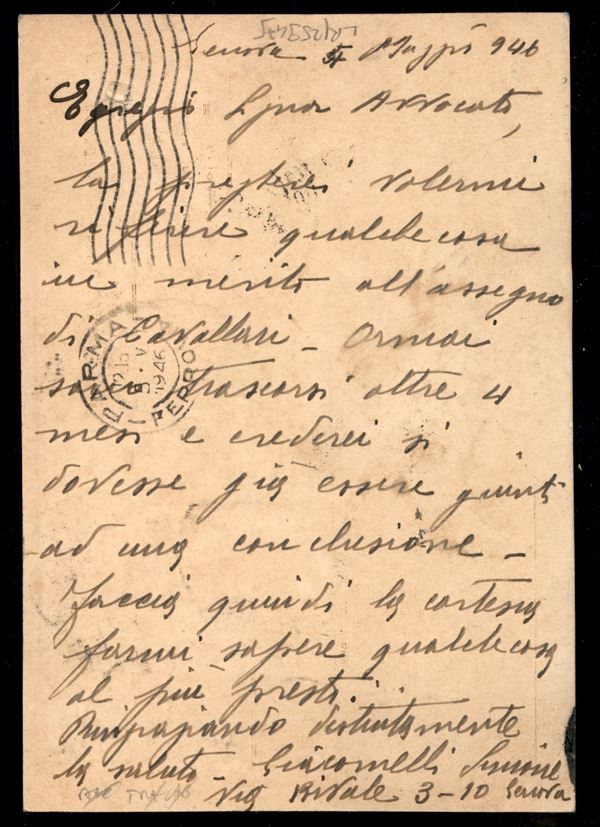 Genova 4 Maggio 946
Egregio Signor Avvocato,
la pregherei volermi
riferire qualche cosa
in merito all'assegno
di Cavallari - Ormai
sono trascorsi oltre 4
mesi e crederei si
dovesse già essere giunti
ad una conclusione -
Faccia quindi la cortesia
farmi sapere qualche cosa
al più presto.
Ringraziando distintamente
la saluto - Giacomelli Simone
Via Rivale 3-10 Genova
PARMA FERRO
8 V
1946